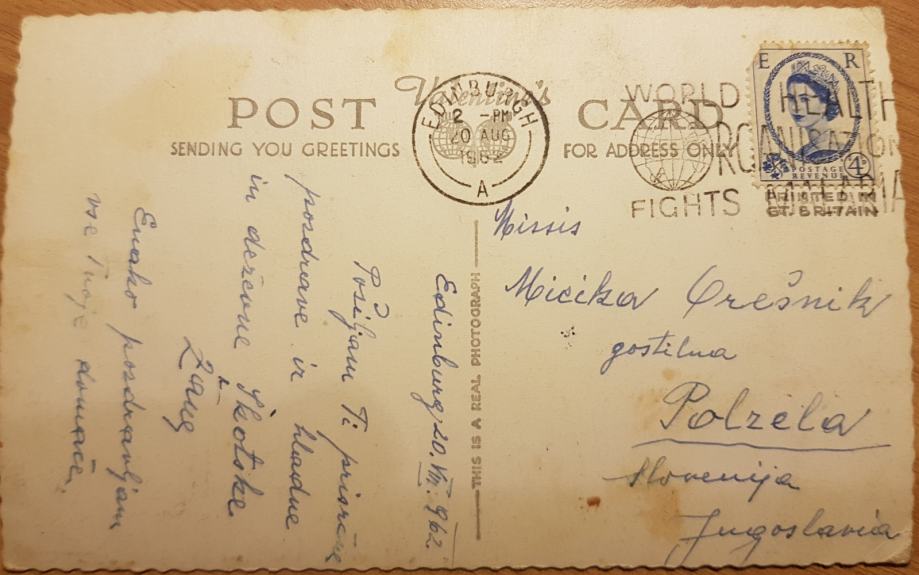 Valentine's
POST CARD
SENDING YOU GREETINGS
FOR ADDRESS ONLY
EDINBURGH
2 - PM
20 AUG
1962
A
WORLD HEALTH
ORGANIZATION
FIGHTS MALARIA
E R
POSTAGE
REVENUE
4D
PRINTED IN
GT. BRITAIN
THIS IS A REAL PHOTOGRAPH
Edinburg 20. VIII. 962.
Pošiljam Ti prisrčne
pozdrave iz hladne
in deževne Škotske.
Enako pozdravljam
vse Tvoje domače.
Missis
Micika Orešnik
gostilna
Polzela
Slovenija
Jugoslavia